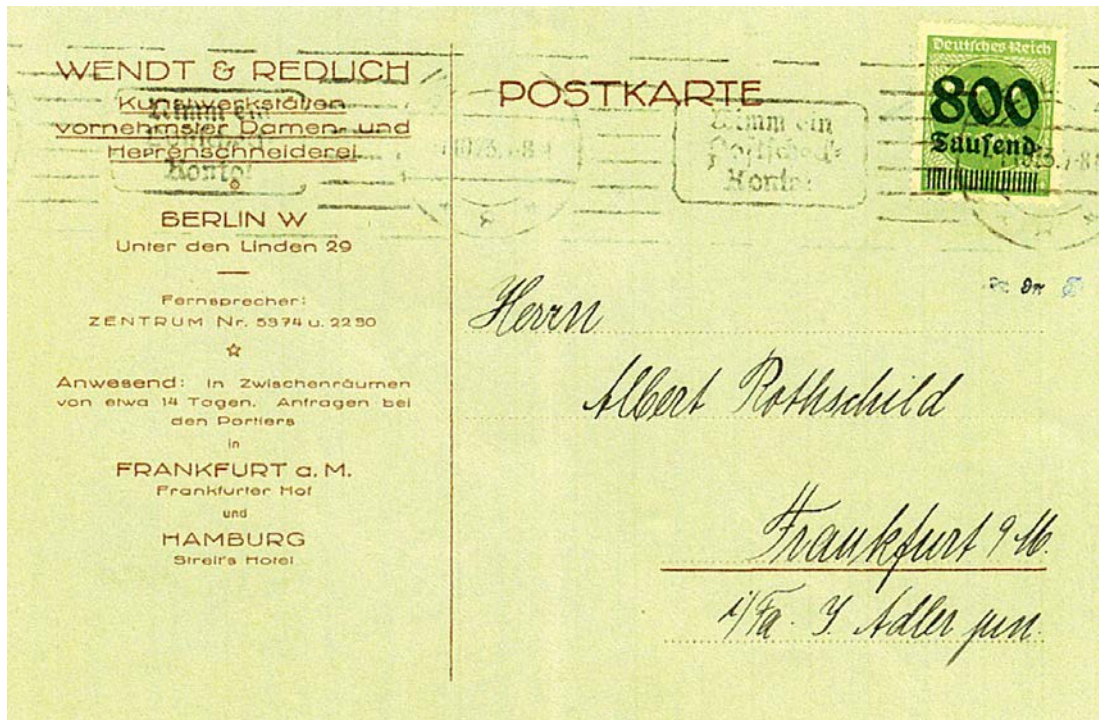 WENDT & REDLICH
Kunstwerkstätten
vornehmster Damen- und
Herrenschneiderei
BERLIN W
Unter den Linden 29
Fernsprecher:
ZENTRUM Nr. 5374 u. 2230
Anwesend: in Zwischenräumen
von etwa 14 Tagen. Anfragen bei
den Portiers
in
FRANKFURT a. M.
Frankfurter Hof
und
HAMBURG
Streit's Hotel
POSTKARTE
Nimm ein
Postscheck-
Konto!
Nimm ein
Postscheck-
Konto!
Deutsches Reich
800
Tausend
Herrn
Albert Rothschild
Frankfurt a M.
i/Fa. J. Adler jun.